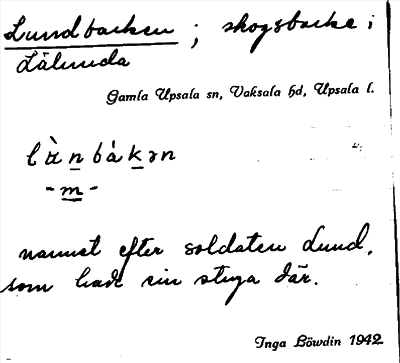 Lundbacken ; skogsbacke i
Lälunda
Gamla Upsala sn, Vaksala hd, Upsala l.
lùn̲bák̲ən
-m̲-
namnet efter soldaten Lund,
som hade sin stuga där.
Inga Löwdin 1942